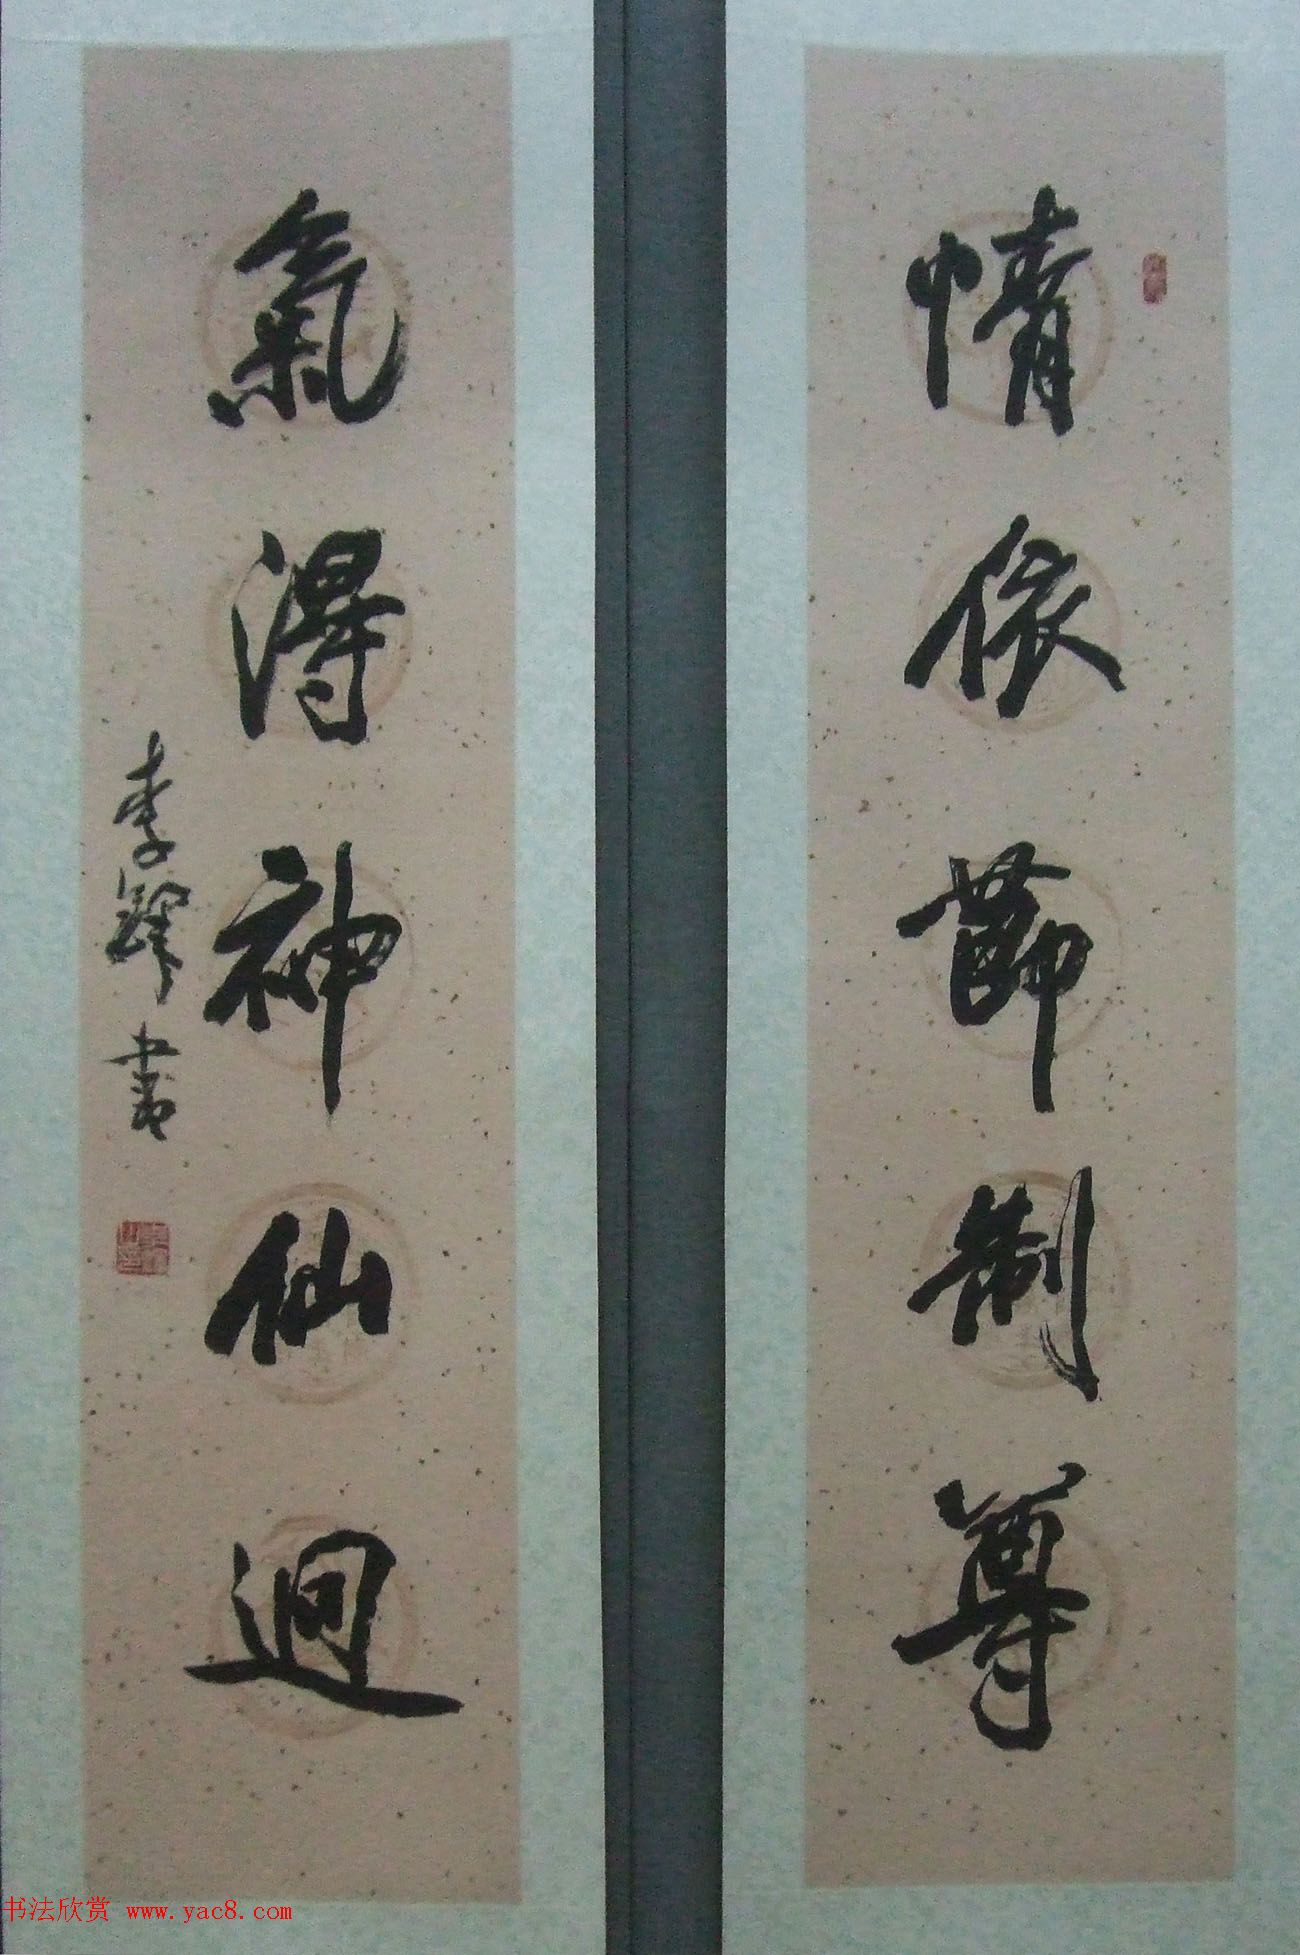 情依節制尊
氣得神仙迥
李鐸書
书法欣赏 www.yac8.com